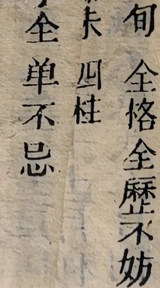 旬全恪全歷不妨
夫四柱
全单不忌